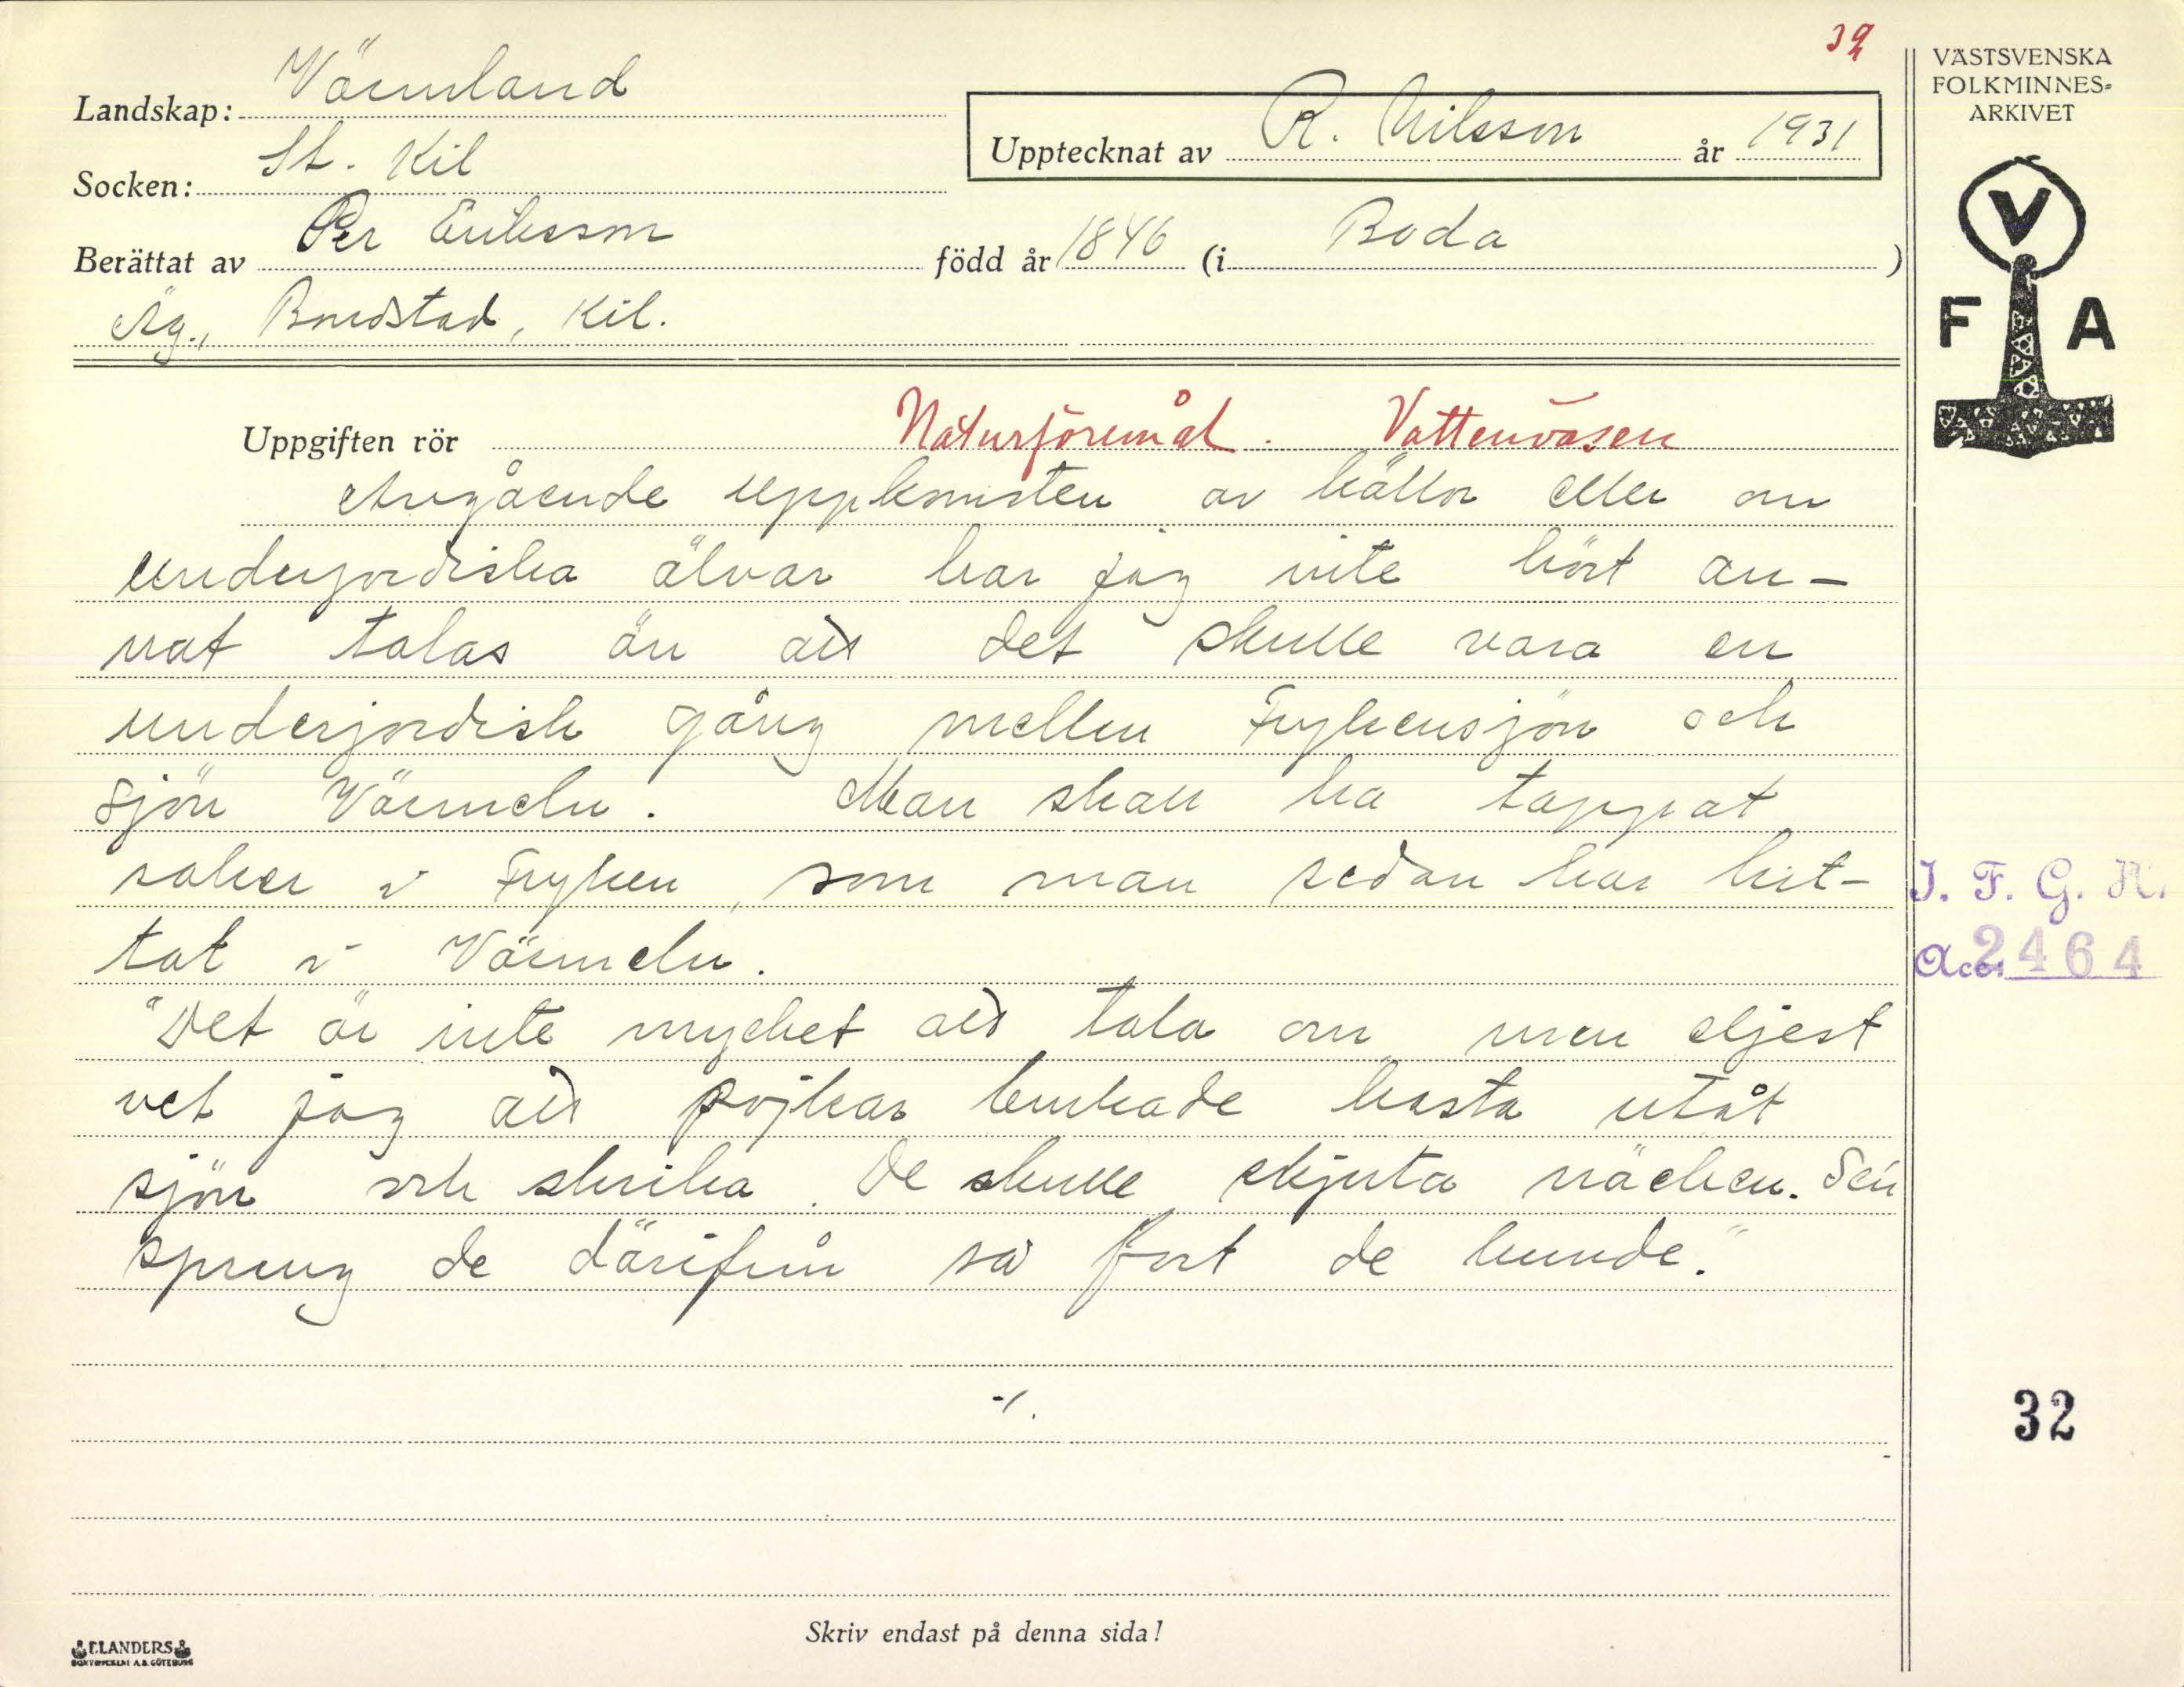 32
VÄSTSVENSKA
FOLKMINNES=
ARKIVET
Landskap: Värmland
Upptecknat av R. Nilsson år 1931
Socken: St. Kil
Berättat av Per Eriksson född år 1846 (i Boda )
Äg., Brudstad, Kil.
V
F A
Uppgiften rör Naturföremål. Vattenväsen
Angående uppkomsten av källor eller om
underjordiska älvar har jag inte hört an-
nat talas än att det skulle vara en
underjordisk gång mellan Frykensjön och
sjön Värmeln. Man skall ha tappat
saker i Fryken, som man sedan har hit-
tat i Värmeln.
"Det är inte mycket att tala om" men eljest
vet jag att pojkar brukade kasta utåt
sjön och skrika. De skulle skjuta näcken. Sen
sprung de därifrån så fort de kunde."
-/.
I. F. G. H.
Acc. 2464
32
Skriv endast på denna sida!
ELANDERS
BOKTRYCKERI A.B. GÖTEBORG